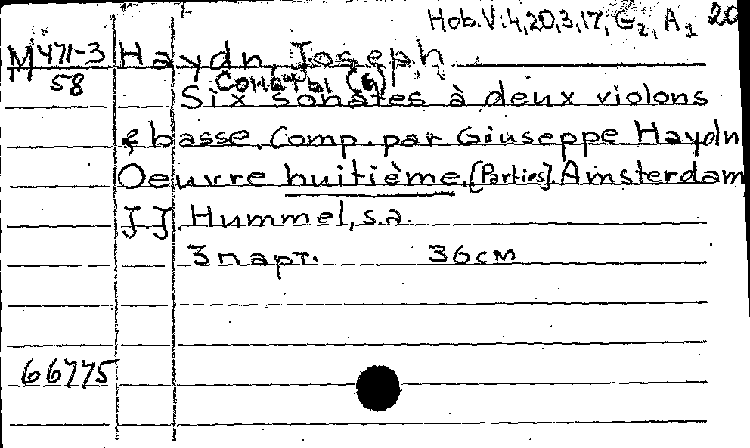 Hob. V:4,20,3,17, G2, A1 20
M 471-3 Haydn, Joseph
58
Сонаты (6)
Six sonates à deux violons
& basse. Comp. par Giuseppe Haydn
Oeuvre huitième. [Parties]. Amsterdam
J.J. Hummel, s.a.
3 парт. 36 см
66775